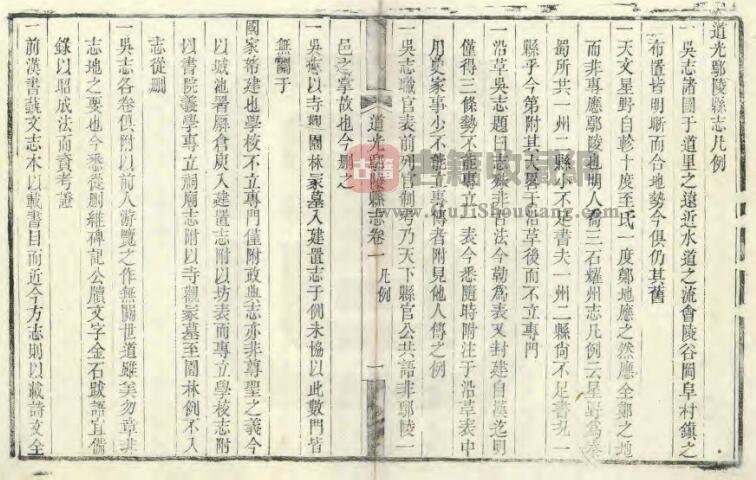 道光鄢陵縣志凡例
一吳志諸圖于道里之遠近水道之流會陵谷岡阜村鎮之
布置皆明晰而合地勢今俱仍其舊
一天文星野自軫十度至氐一度鄭地應之然應全鄭之地
而非專應鄢陵也明人喬三石耀州志凡例云星野為秦
蜀所共一州二縣小不足書夫一州二縣尚不足書況一
縣乎今第附其大畧于沿革後而不立專門
一沿革吳志題曰志殊非古法今勒為表又封建自漢迄明
僅得三條勢不能專立一表今悉隨時附注于沿革表中
用史家事少不能立專傳者附見他人傳之例
一吳志職官表前列官制考乃天下縣官公共語非鄢陵一
道光鄢陵縣志卷一 凡例 一
邑之掌故也今刪之
一吳志以寺觀園林冢墓入建置志于例未協以此數門皆
無關于
國家蒂建也學校不立專門僅附政典志亦非尊聖之義今
以城池署廨倉庾入建置志附以坊表而專立學校志附
以書院義學專立祠廟志附以寺觀冢墓至園林例不入
志從刪
一吳志各卷俱附以前人游覽之作無關世道雖矣勿章非
志地之要也今悉從刪雜碑記公牘文字金石跋語宜備
錄以昭成法而資考證
一前漢書藝文志本以載書目而近今方志則以載詩文全
古籍
古籍收藏网
www.GuJiShouCang.com